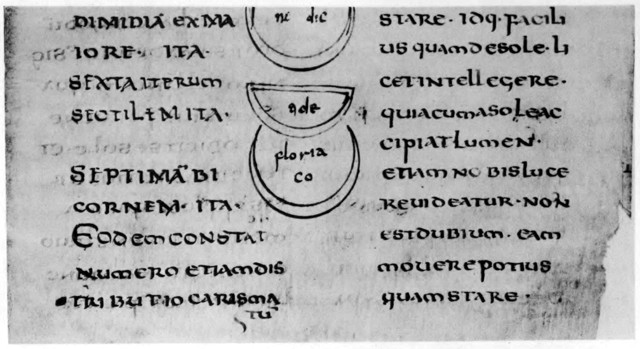 DIMIDIĀ EX MA
IORE · ITA ·
SEXTA ITERUM
SECTILEM ITA ·
SEPTIMĀ BI
CORNEM · ITA ·
EODEM CONSTAT
NUMERO ETIAM DIS
TRIBUTIO CARISMA
TŪ
dic
gloria
co
STARE · IDQ· FACILI
US QUAM DE SOLE · LI
CET INTELLEGERE ·
QUIA CUM A SOLE AC
CIPIAT LUMEN ·
ETIAM NOBIS LUCE
RE UIDEATUR · NON
EST DUBIUM · EAM
MOUERE POTIUS
QUAM STARE ·